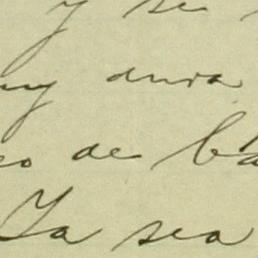 y su
uy dura
eo de ba
Ya sea